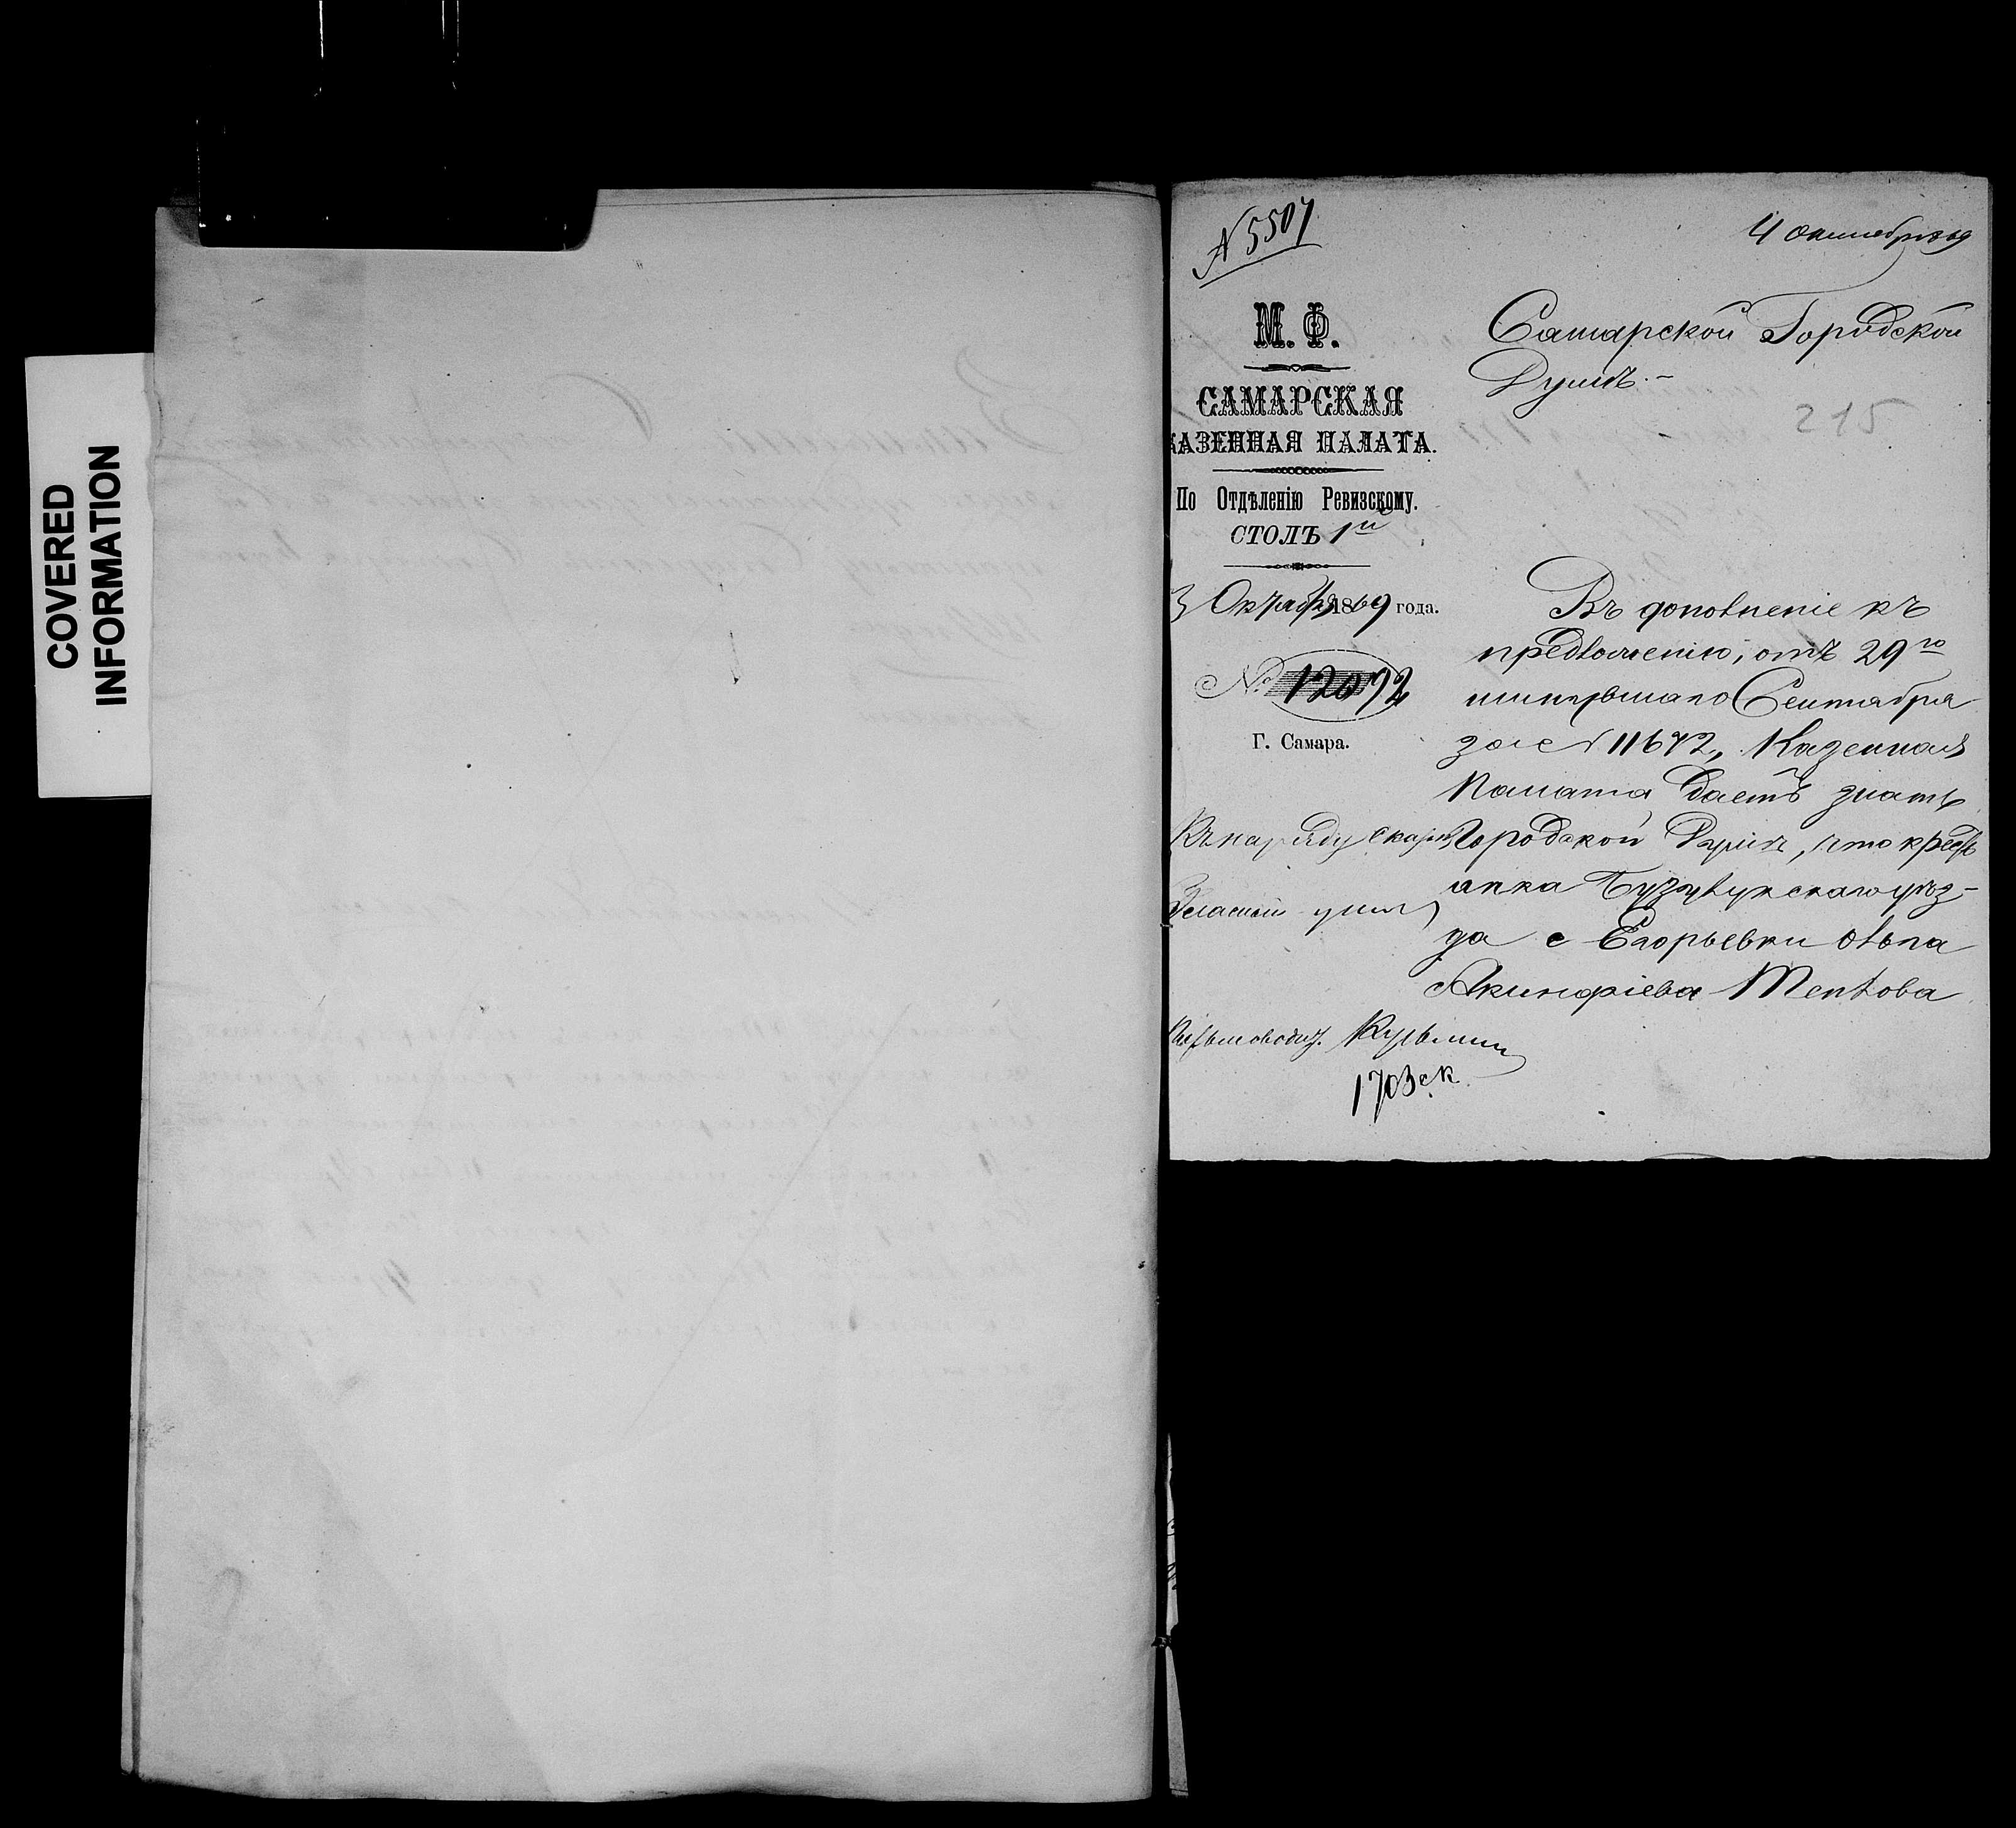 COVERED
INFORMATION
N 5507
4 октября 69
М. Ф.
САМАРСКАЯ
КАЗЕННАЯ ПАЛАТА.
По Отдѣленію Ревизскому.
СТОЛЪ 1й
3 Октября 1869 года.
№ 12072
Г. Самара.
Самарской Городской
Думѣ.-
215
Въ дополненіе къ
предложенію, отъ 29го
минувшаго Сентября
за № 11672, Казенная
Палата даетъ знать
Городской Думѣ, что кресть
янка Бузулукскаго уѣз-
да с Егорьевки Ѳевла
Акинфіева Теплова
Къ наряду
Кузьмин
1703